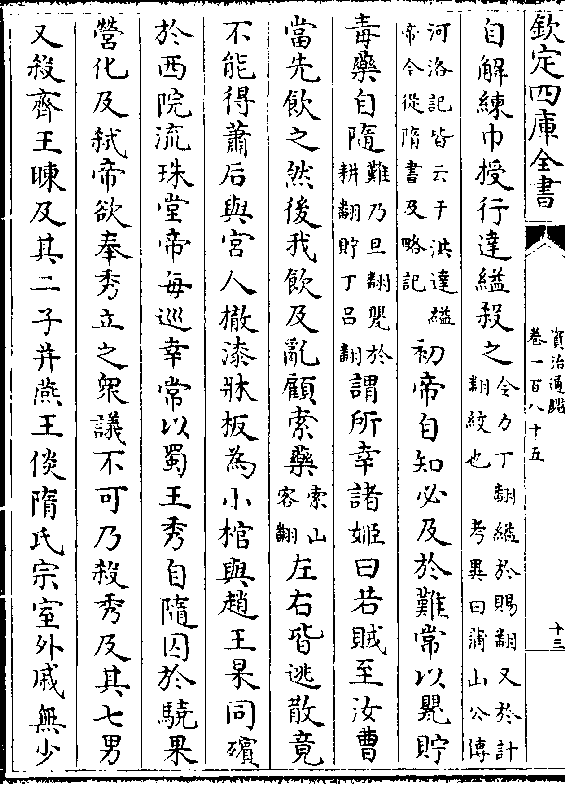 欽定四庫全書
資治通鑑
卷一百八十五
十三
自解練巾授行達縊殺之
令力丁翻縊於賜翻又於計
翻絞也 考異曰蒲山公傳
河洛記皆云于洪達縊
帝今從隋書及略記
初帝自知必及於難常以甖貯
毒藥自隨
難乃旦翻甖於
耕翻貯丁呂翻
謂所幸諸姬曰若賊至汝曹
當先飲之然後我飲及亂顧索藥
索山
客翻
左右皆逃散竟
不能得蕭后與宮人撤漆牀板為小棺與趙王杲同殯
於西院流珠堂帝每巡幸常以蜀王秀自隨囚於驍果
營化及弑帝欲奉秀立之衆議不可乃殺秀及其七男
又殺齊王暕及其二子并燕王倓隋氏宗室外戚無少